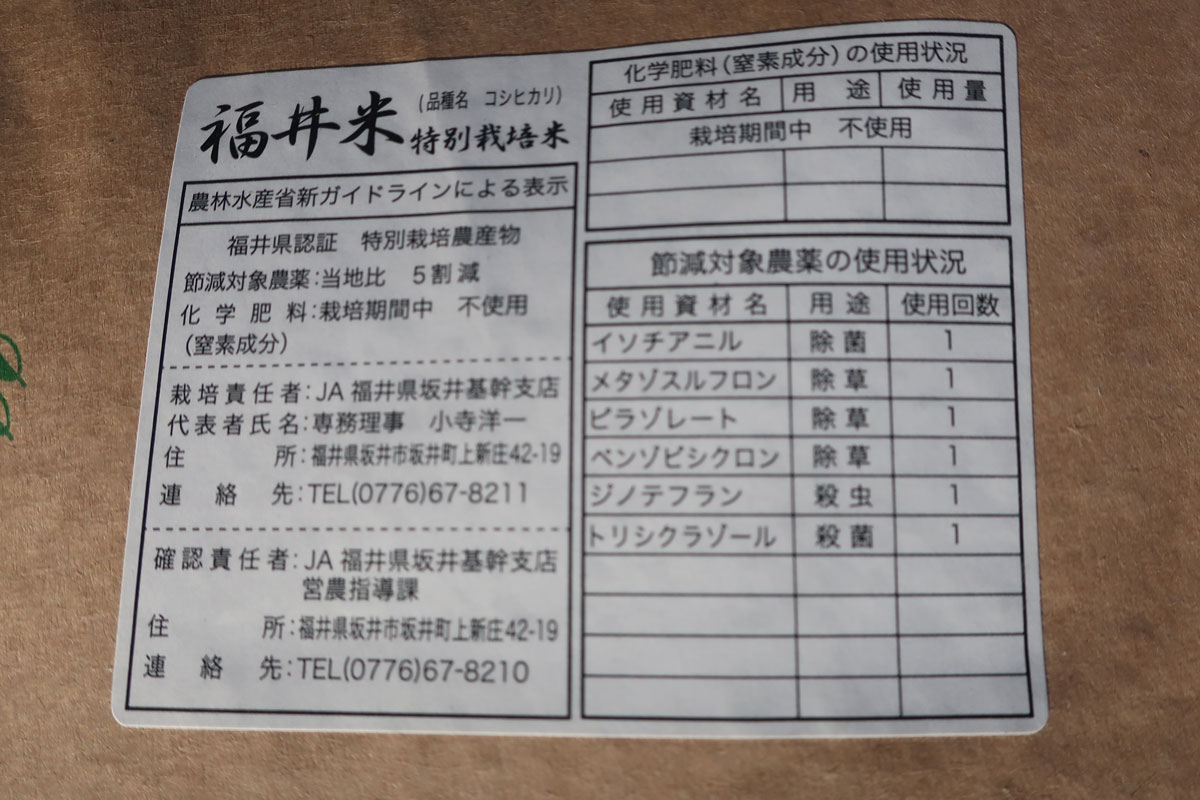 福井米
(品種名 コシヒカリ)
特別栽培米
農林水産省新ガイドラインによる表示
福井県認証 特別栽培農産物
節減対象農薬:当地比 5割減
化学肥料:栽培期間中 不使用
(窒素成分)
栽培責任者:JA福井県坂井基幹支店
代表者氏名:専務理事 小寺洋一
住所:福井県坂井市坂井町上新庄42-19
連絡先:TEL(0776)67-8211
確認責任者:JA福井県坂井基幹支店
営農指導課
住所:福井県坂井市坂井町上新庄42-19
連絡先:TEL(0776)67-8210
化学肥料(窒素成分)の使用状況
使用資材名 用途 使用量
栽培期間中 不使用
節減対象農薬の使用状況
使用資材名 用途 使用回数
イソチアニル 除菌 1
メタゾスルフロン 除草 1
ピラゾレート 除草 1
ベンゾビシクロン 除草 1
ジノテフラン 殺虫 1
トリシクラゾール 殺菌 1